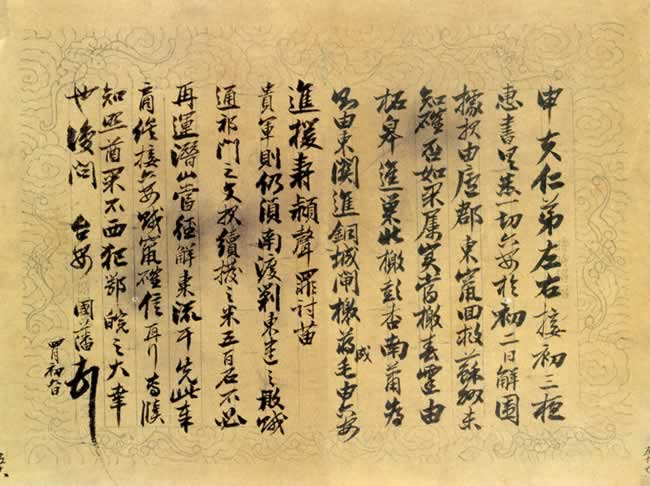 申夫仁弟左右接初三夜
惠書具悉一切六安於初二日解圍
據報由廬郡東竄回救蘇州未
知確否如果屬實當檄春霆由
柘皋進巢北檄彭杏南蕭為
則由東關進銅城閘檄蔣毛由六安
成
進援壽潁聲罪討苗
貴軍則仍須南渡剿東建之敗賊
通祁門之文報續撥之米五百石不必
再運潛山當徑解東流耳先此奉
商俟接六安賊竄確信再行咨牘
知照酋果不西犯鄂皖之大幸
也復問 台安 國藩頓
四月初